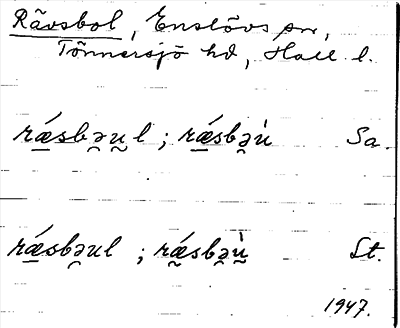 Rävsbol, Enslövs sn,
Tönnersjö hd, Hall l.
rǽ̲sbə̯u̯l ; rǽ̲sbə̯ù Sa.
rǽ̲sbə̯ul ; rǽ̯sbə̯ù̯ St.
1947.